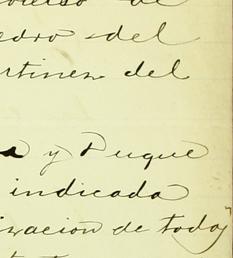 de
edro del
rtinez del
a y Duque
indicada
ización de todos